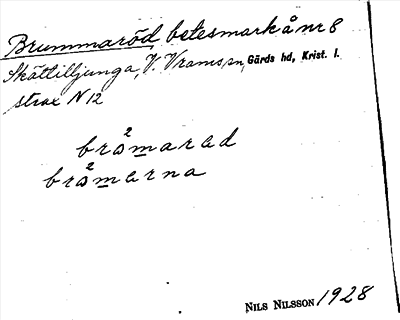 Brummaröd betesmark å nr 8
Skättilljunga, V. Vrams sn, Gärds hd, Krist. l.
strax N 12
brò²marad
brò²marna
NILS NILSSON 1928